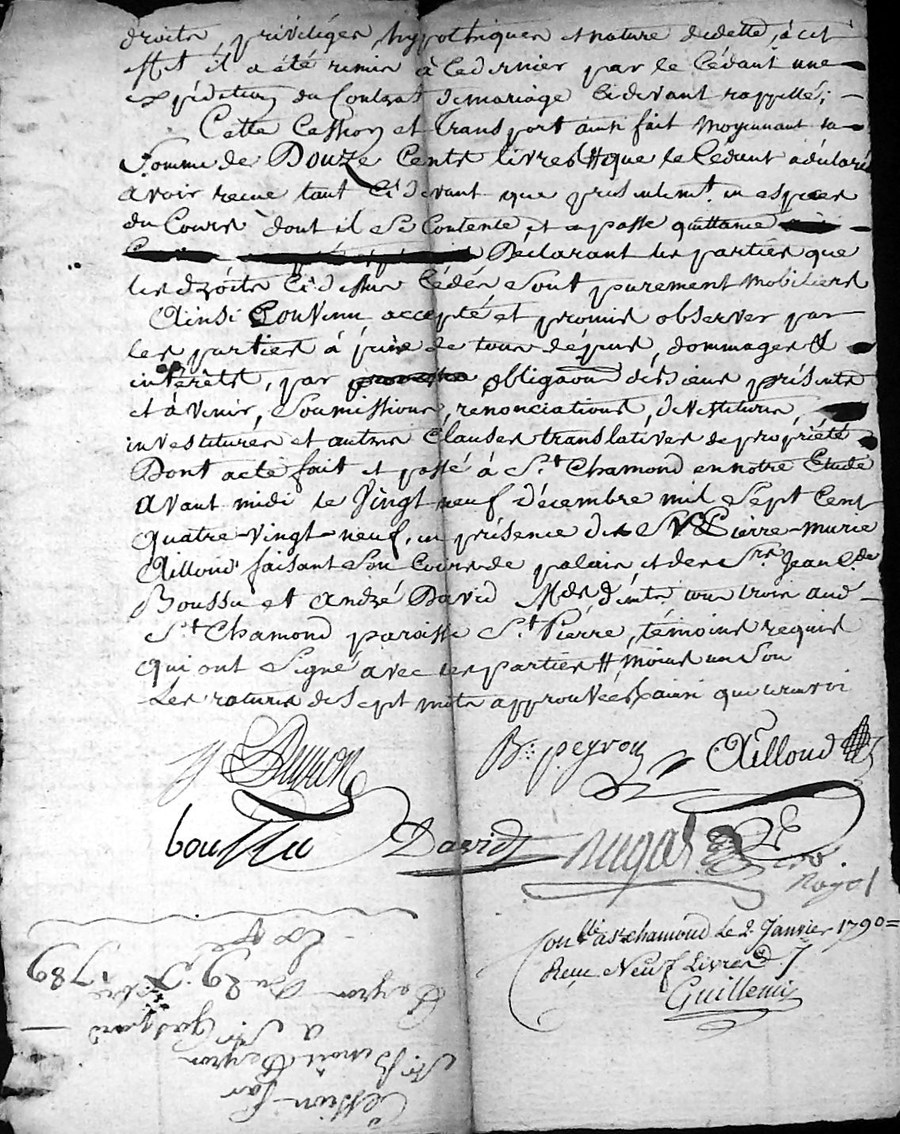 droits, privilèges, hypothiques et nature dudette, à cet
effet il a été remis à cedernier par le Cédant une
expédition du Contrat demariage cidevant rappellé;
Cette Cession et transport ainsi fait moyennant la
Somme de Douze Cents livres # que le Cédant a déclaré
avoir reçue tant cidevant que présentemt. en espèces
du Cours dont il se Contente, et en passe quittance
Déclarant les parties que
les droits cidessus cédés sont purement mobiliers
Ainsi Convenu accepté et promis observer par
les parties à peine de tous dépens, dommages &
intérêts, par obligaon de biens présents
et àvenir, soumissions, renonciations, devestitures,
investitures et autres clauses translatives depropriété
Dont acte fait et passé à St. Chamond en notre Etude
avant midi le Vingt-neuf décembre mil Sept Cent
quatre-vingt-neuf, en présence de Sr. Pierre-marie
Ailloud faisant Son Cours de palais et des Srs. Jean Cde
Boussu et André David Mds. tous trois aud
St. Chamond paroisse St. Pierre, témoins requis
qui ont Signé avec les parties # moins un Sou
Les ratures de Sept mots approuvées ainsi que
Bt. peyron Ailloud
boussu David
Royal
Conlle. à St chamond Le 2. Janvier 1790=
Reçu Neuf Livres
Guillemin
Cession par
Sr. Benoit Peyron
à Sr. Gaspard
Peyron Du 29. Xbre 1789